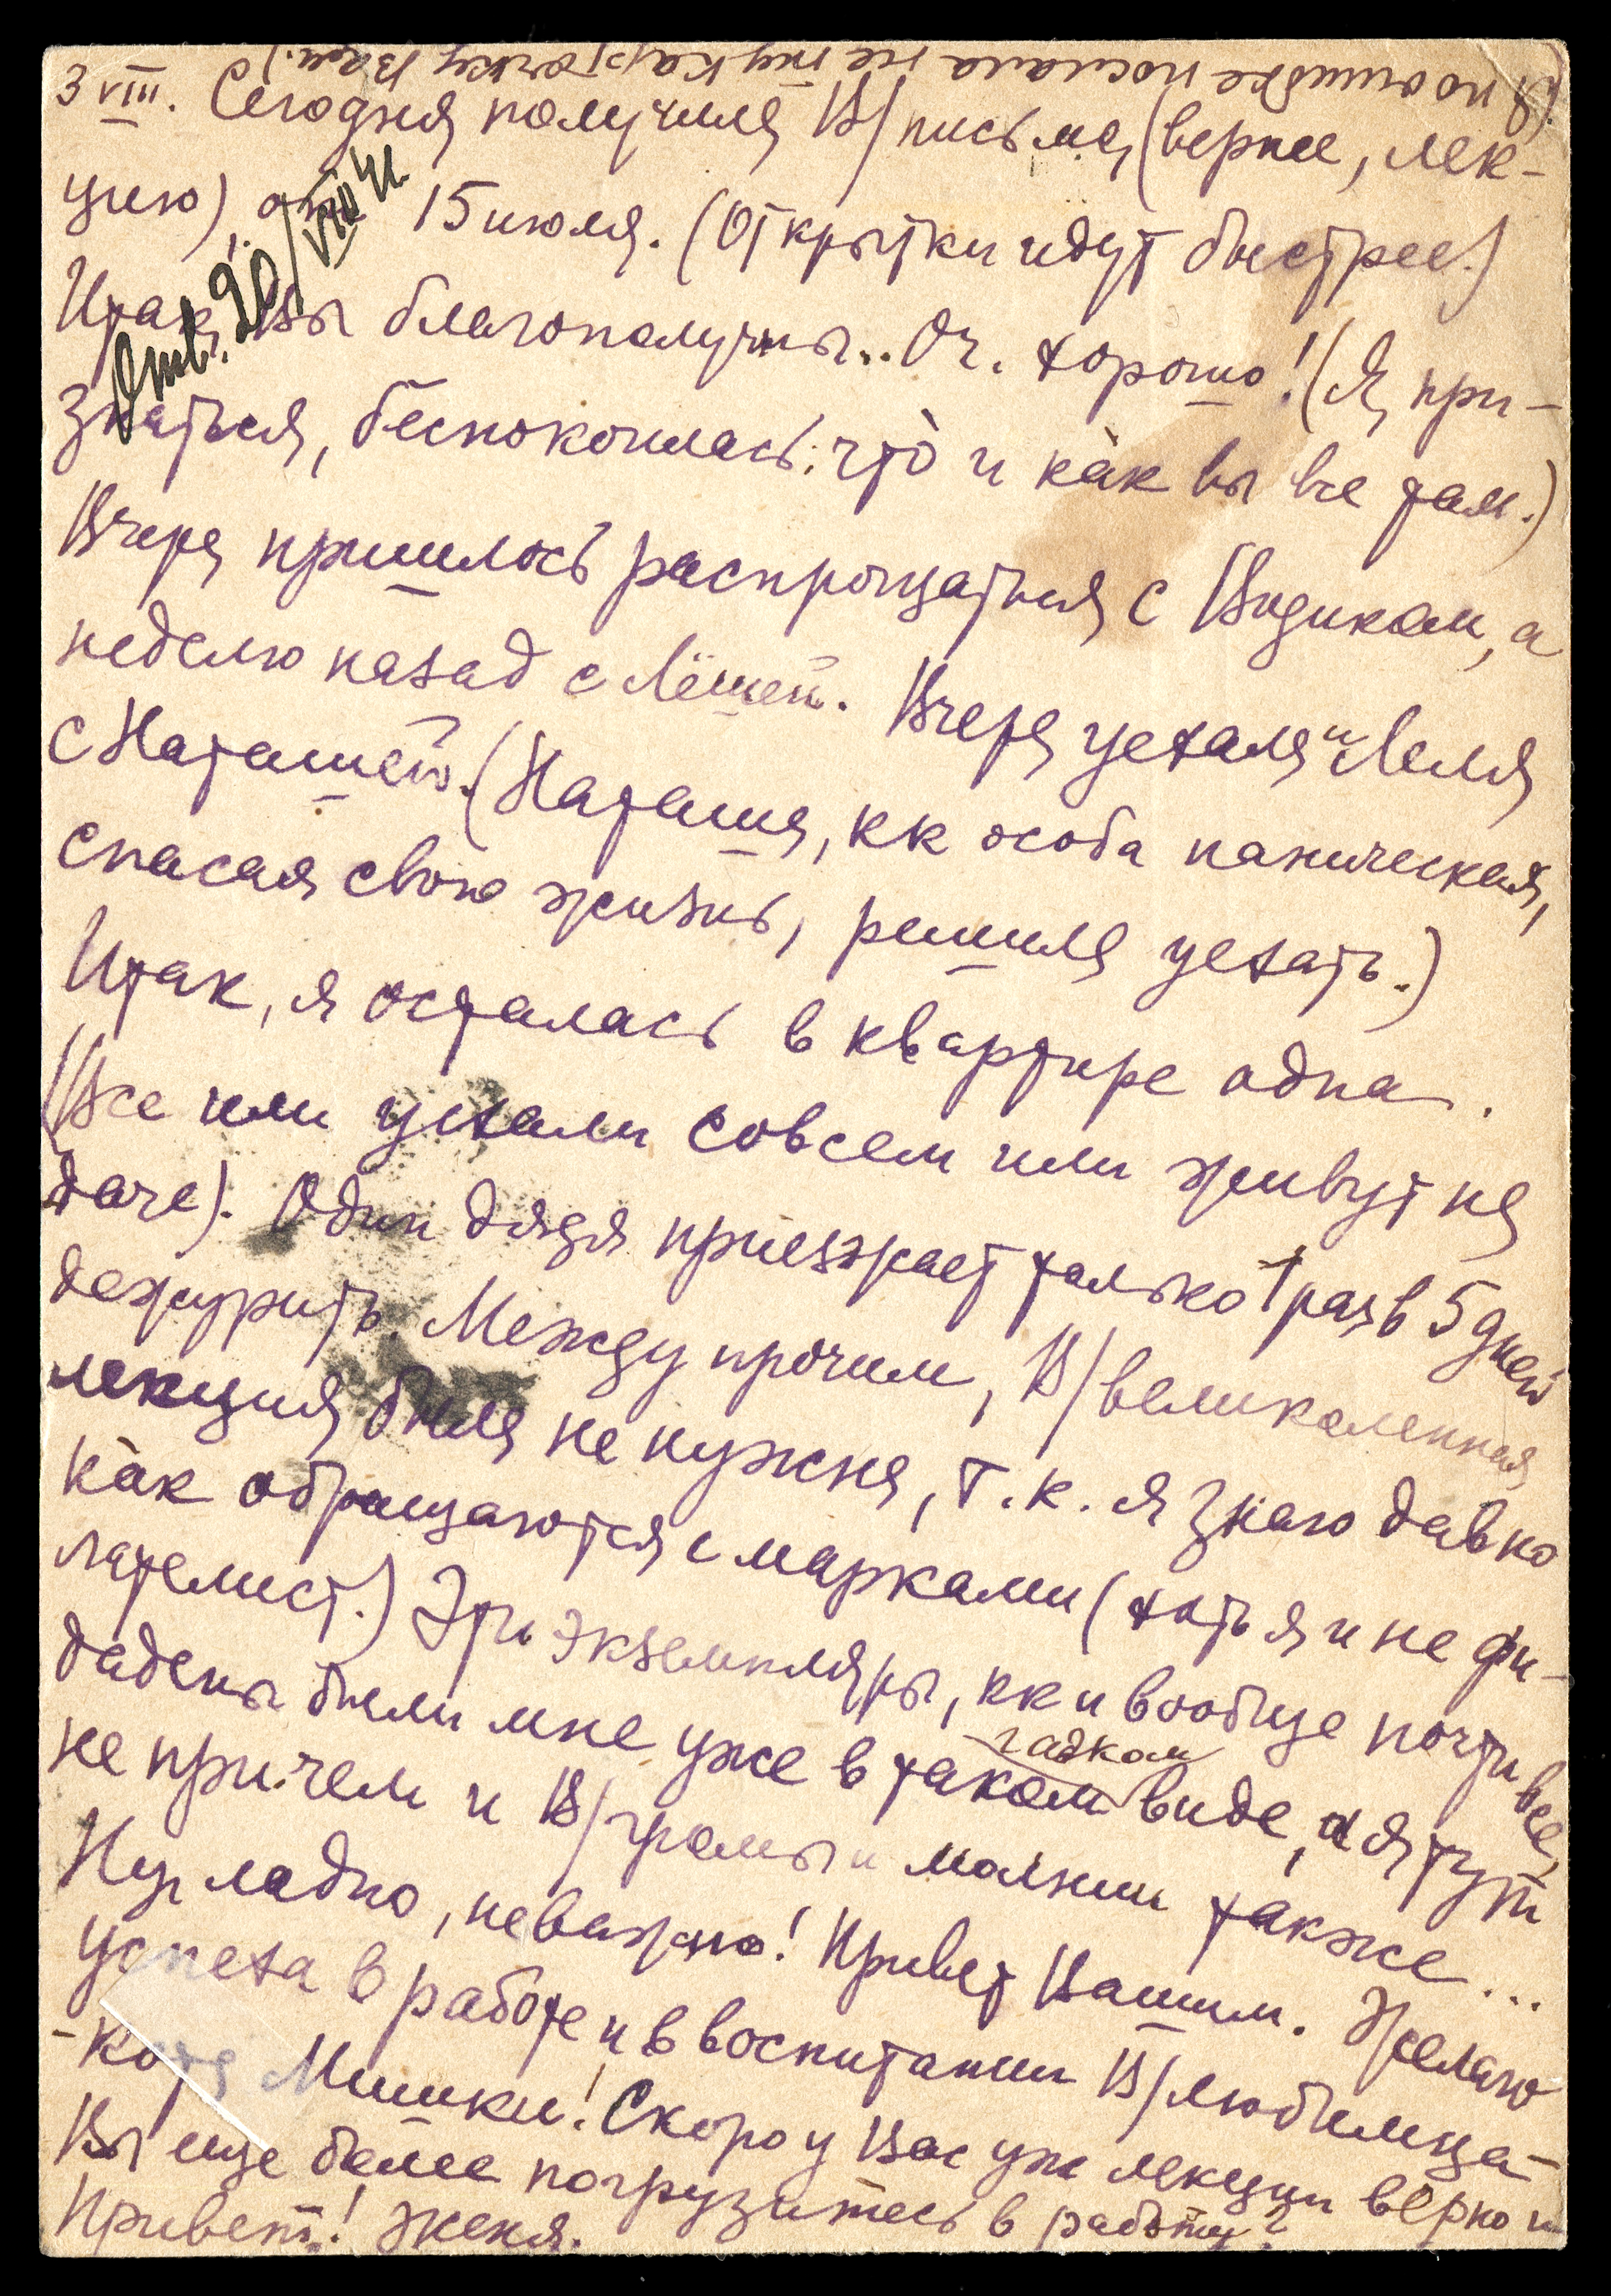 (Я по ошибке послала не ту карточку Вам.)
3 VIII. Сегодня получила В/письмо, (вернее, лек-
цию), от 15 июля. (Открытки идут быстрее.)
Отв. 20/VIII 41
Итак, Вы благополучны.. Оч. хорошо! (Я, при-
знаться, беспокоилась: что̀ и ка̀к вы все там.)
Вчера пришлось распрощаться с Вадиком, а
неделю назад с Лёшей. Вчера уехала и Леля
с Наташей. (Наташа, кк особа паническая,
спасая свою жизнь, решила уехать.)
Итак, я осталась в квартире одна.
(Все или уехали совсем или живут на
даче). Один дядя приезжает только 1 раз в 5 дней
дежурить. Между прочим, В/великолепная
лекция была не нужна, т.к. я знаю давно
ка̀к обращаются с марками (хоть я и не фи-
лателист.) Эти экземпляры, кк и вообще почти все,
дадены были мне уже в таком гадком виде, а я тут
не причем и В/громы и молнии также...
Ну, ладно, неважно! Привет Вашим. Желаю
успеха в работе и в воспитании В/любимца-
-кота Мишки! Скоро у Вас уж лекции верно и
Вы еще более погрузитесь в работу?
Привет! Женя.